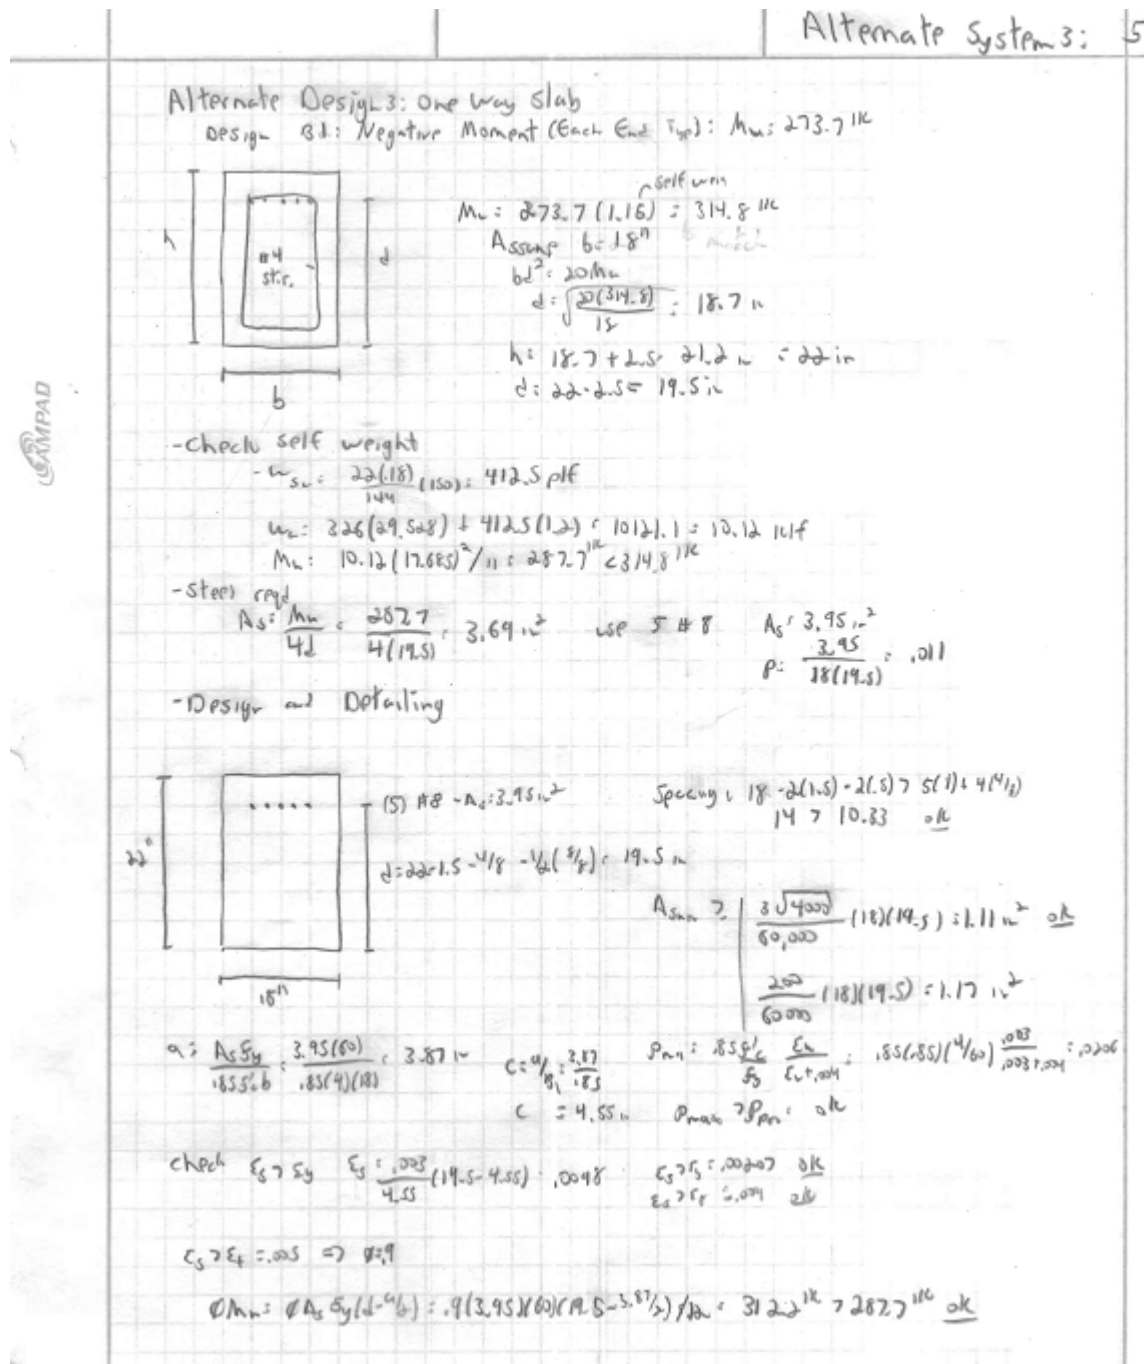 Alternate System 3: 5
Alternate Design 3: One Way Slab
Design B1: Negative Moment (Each End Typ): Mu: 273.7 'k
self
Mu: 273.7(1.15) = 314.8 'k
Assume b = 18"
bd² = 20Mu
d = √(20(314.8)/18) = 18.7 in
h: 18.7 + 2.5 = 21.2 in = 22 in
d: 22-2.5 = 19.5 in
h
#4
stir.
d
b
CAMPAD
-Check self weight
-wsw: 22(18)/144 (150) = 412.5 plf
wu: 326(29.528) + 412.5(1.2) = 10121.1 = 10.12 klf
Mu: 10.12(17.685)²/11 = 287.7 'k < 314.8 'k
-Steel reqd
As: Mu/4d = 287.7/4(19.5) = 3.69 in² use 5 #8 As: 3.95 in²
ρ: 3.95/18(19.5) = .011
-Design and Detailing
(5) #8 - As: 3.95 in² Spacing: 18 -2(1.5) -2(.5) > 5(1) + 4(4/3)
14 > 10.33 ok
22"
d = 22-1.5 -4/8 -1/2(8/8) = 19.5 in
Asmin > | 3√4000/60,000 (18)(19.5) = 1.11 in² ok
200/60000 (18)(19.5) = 1.17 in²
18"
a: Asfy/.85f'cb = 3.95(60)/.85(4)(18) = 3.87 in c = a/β1 = 3.87/.85 .85f'c/fy εu/εu+.004 = .85(.85)(4/60) .003/.003+.004 = .0206
c = 4.55 in ρmax > ρ ok
check εs > εy εs = .003/4.55 (19.5-4.55) = .0098 εs > εy = .00207 ok
εs > εt = .004 ok
εs > εt = .005 => φ=.9
φMn: φAsfy(d-a/2) = .9(3.95)(60)(19.5-3.87/2)/12 = 312.2 'k > 287.7 'k ok